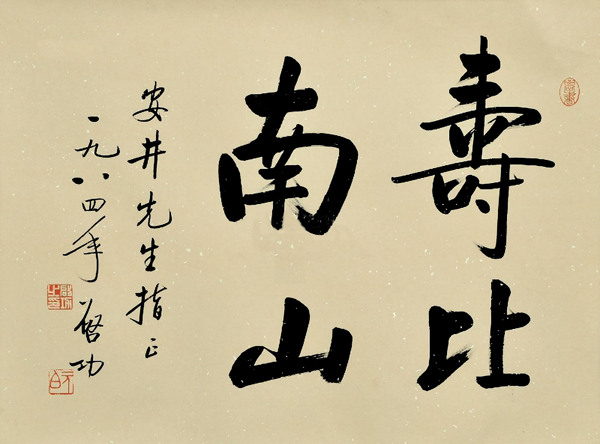 壽比
南山
安井先生指正
一九八四年 啓功